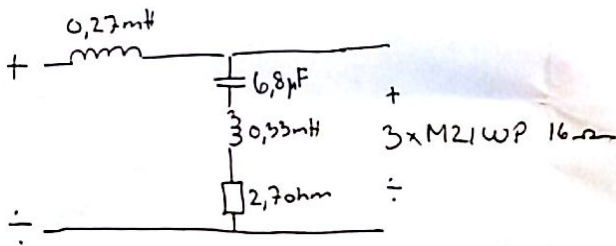 0,27mH
+
6,8µF
+
0,33mH
3xM21WP 16Ω
2,7ohm
÷
÷